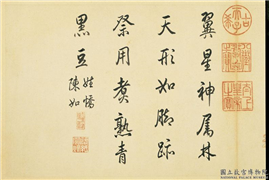 翼星神属林
天形如腳跡
祭用煑熟青
黑豆
姓憍
陳如
國立故宮博物院